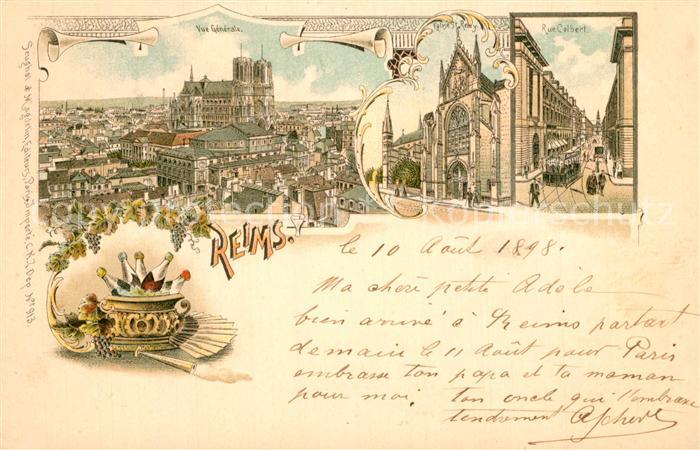 Vue Générale.
Rue Colbert
REIMS.
le 10 Août 1898.
Ma chère petite Adèle
bien arrivé à Reims partant
demain le 11 Août pour Paris
embrasse ton papa et ta maman
pour moi. ton oncle qui l'embrasse
tendrement